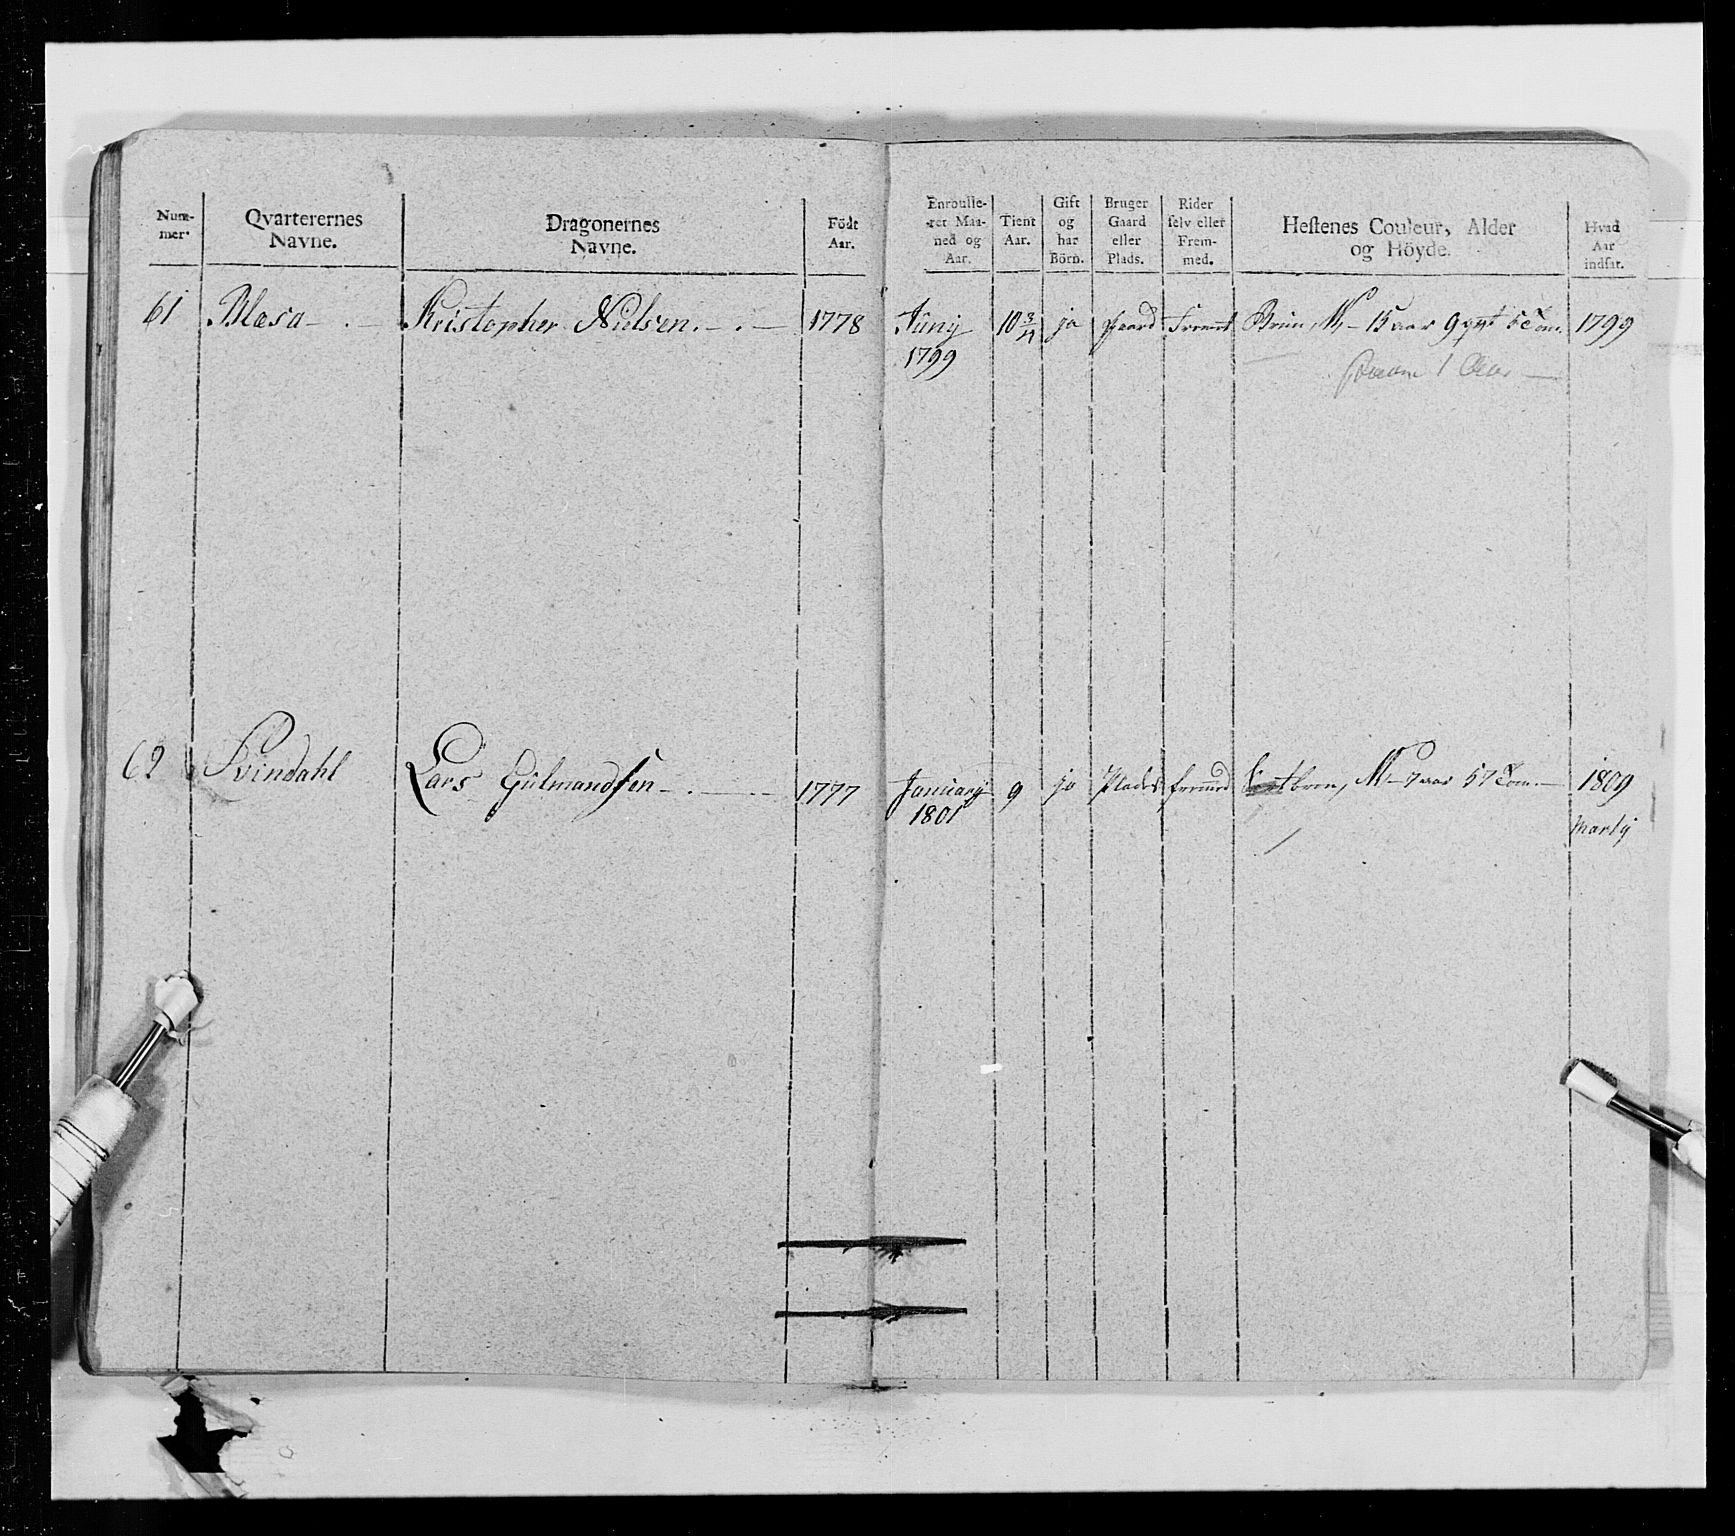 Num-
mer.
Qvarterernes
Navne.
Dragonernes
Navne.
Födt
Aar.
Enroulle-
ret Maa-
ned og
Aar.
Tient
Aar.
Gift
og
har
Börn.
Bruger
Gaard
eller
Plads.
Rider
selv eller
Frem-
med.
Hestenes Couleur, Alder
og Höyde.
Hvad
Aar
indsat.
61 Blæsa Kristopher Nielsen. 1778 Junij 10 3/4 ja Gaard fremd Brun, M, 15 aar 9 qvt 5 Tom. 1799
1799
1 Aar
62 Svindahl Lars Gulmandsen 1777 January 9 ja Plads fremd M 7 aar 57 Tom. 1809
1801
Martij